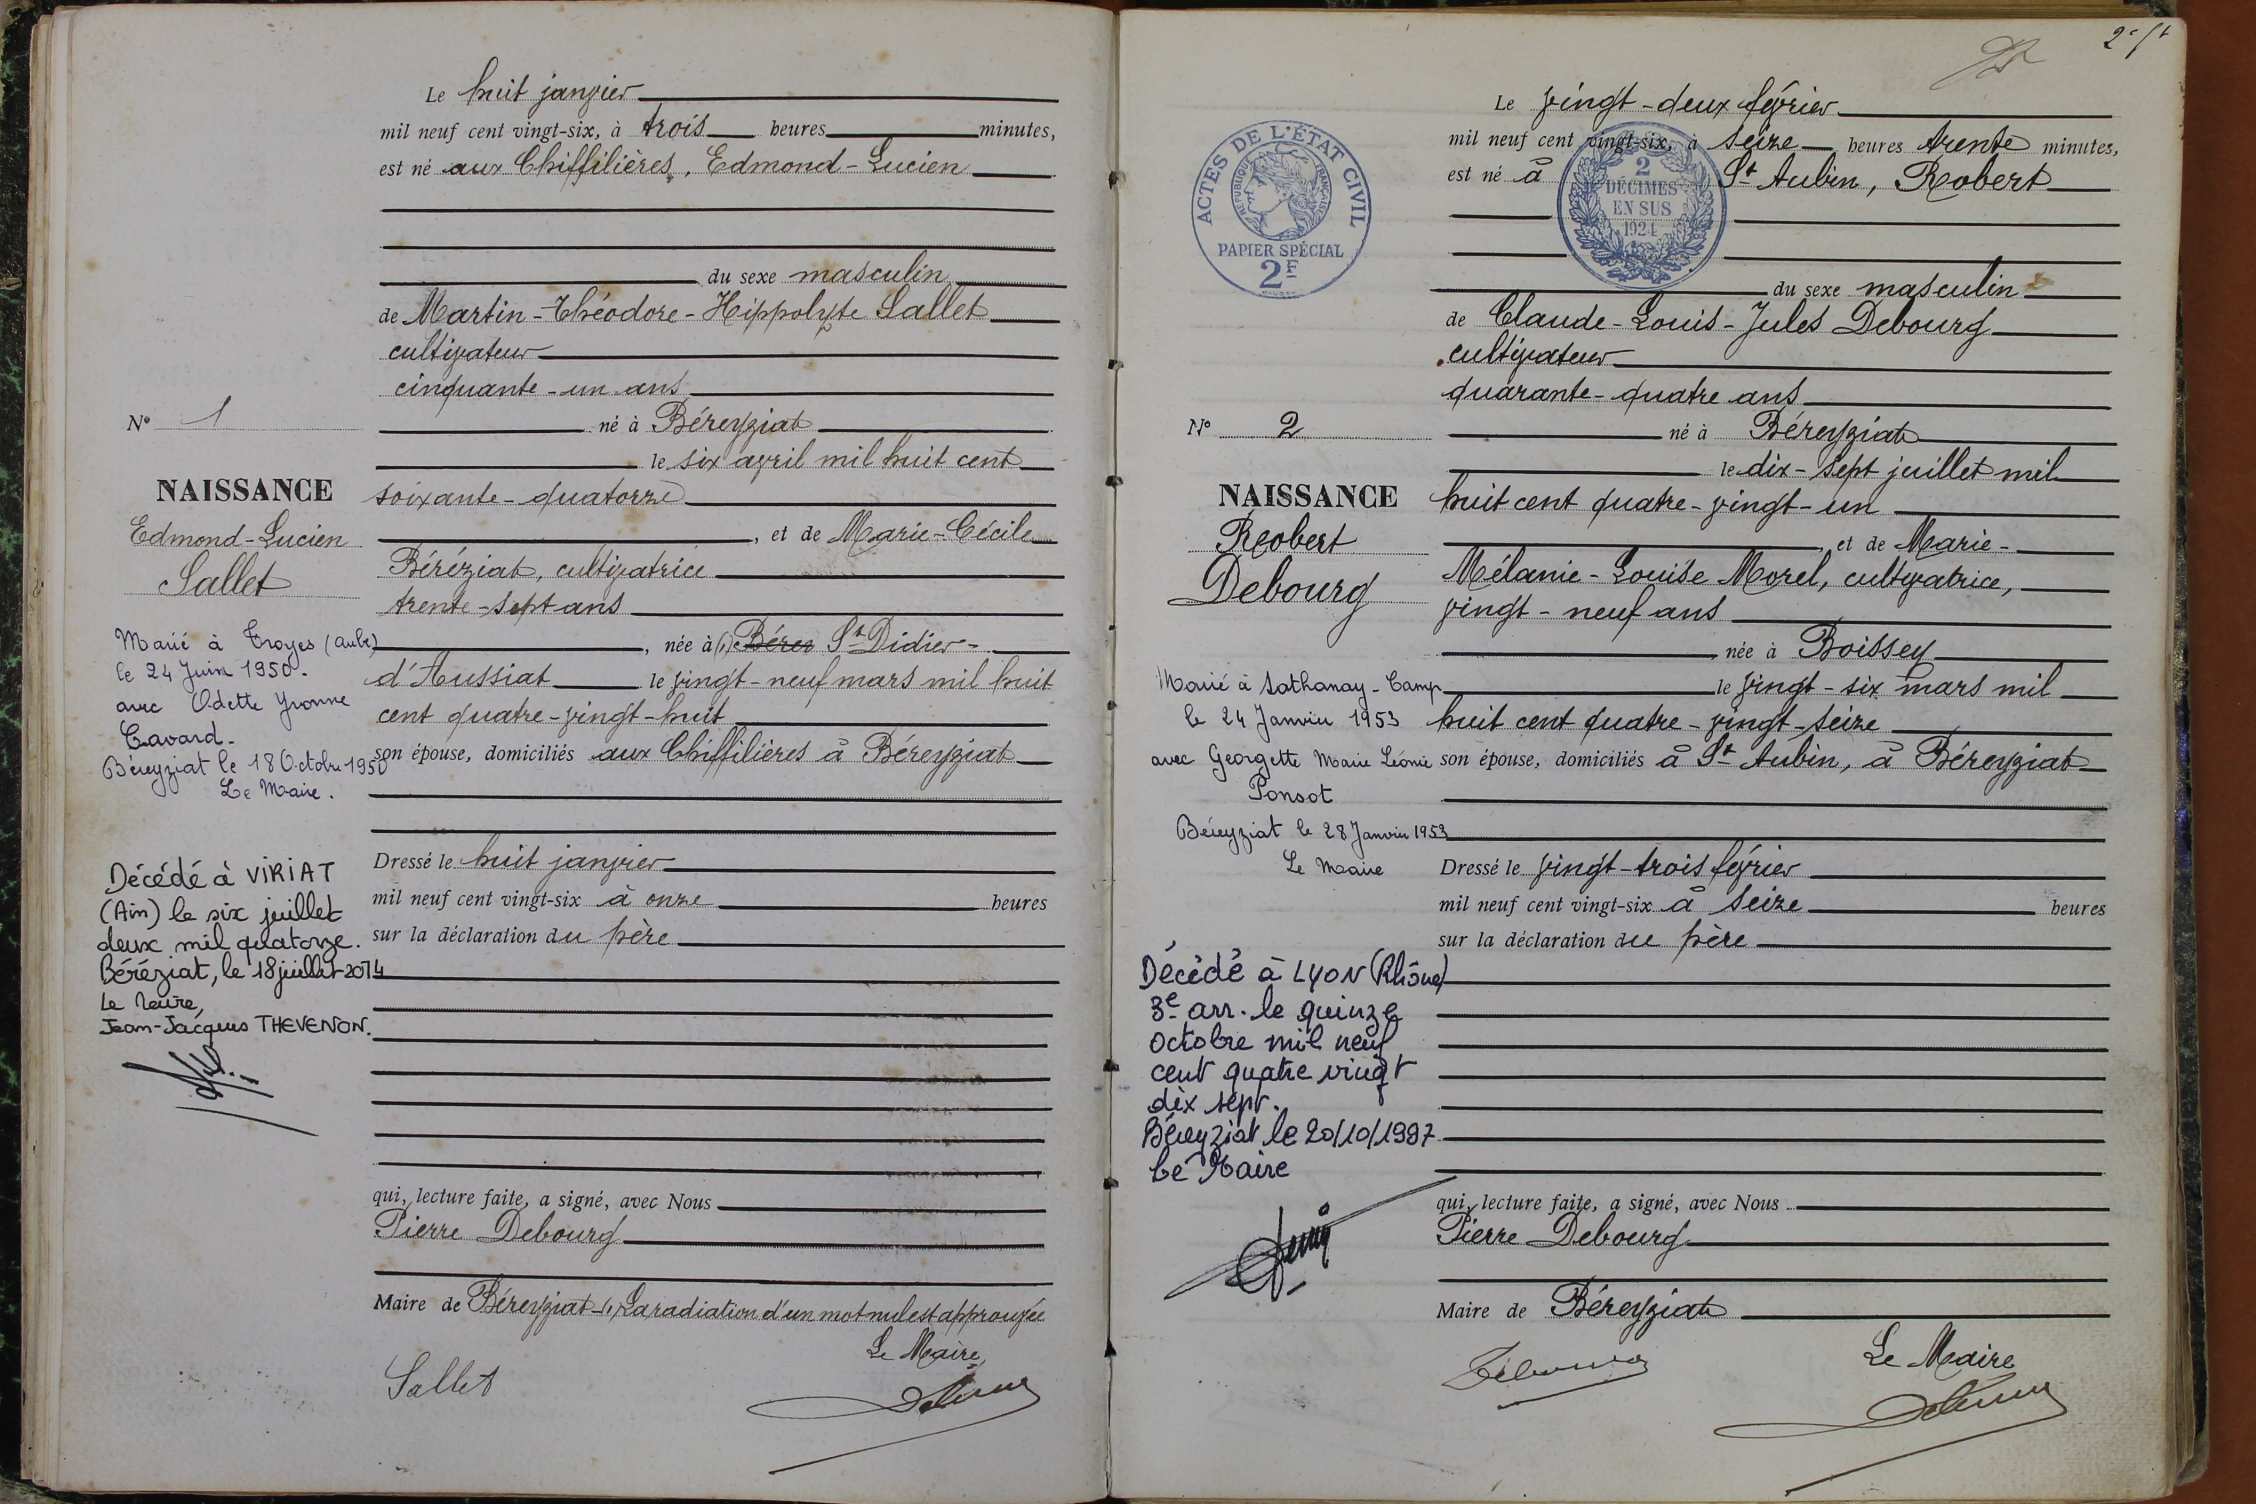 Le huit janvier
mil neuf cent vingt-six, à trois heures minutes,
est né aux Chiffilières, Edmond-Lucien
du sexe masculin
de Martin-Théodore-Hippolyte Sallet
cultivateur
cinquante-un ans
né à Béreyziat
le six avril mil huit cent
soixante-quatorze
, et de Marie-Cécile
Béréziat, cultivatrice
trente-sept ans
, née à (1) Bérez St Didier-
d'Aussiat le vingt-neuf mars mil huit
cent quatre-vingt-huit
son épouse, domiciliés aux Chiffilières à Béreyziat
Dressé le huit janvier
mil neuf cent vingt-six à onze heures
sur la déclaration du père
qui, lecture faite, a signé, avec Nous
Pierre Debourg
Maire de Béreyziat (1) La radiation d'un mot nul est approuvée
Le Maire
Sallet
No 1
NAISSANCE
Edmond-Lucien
Sallet
Marié à Troyes (Aube)
le 24 Juin 1950.
avec Odette Yvonne
Cavard.
Béreyziat le 18 Octobre 1950
Le Maire.
Décédé à VIRIAT
(Ain) le six juillet
deux mil quatorze.
Béréziat, le 18 juillet 2014
Le Maire,
Jean-Jacques THEVENON.
Le vingt-deux février
mil neuf cent vingt-six, à seize heures trente minutes,
est né à St Aubin, Robert
du sexe masculin
de Claude-Louis-Jules Debourg
cultivateur
quarante-quatre ans
né à Béreyziat
le dix-sept juillet mil
huit cent quatre-vingt-un
, et de Marie-
Mélanie-Louise Morel, cultivatrice,
vingt-neuf ans
née à Boissey
le vingt-six mars mil
huit cent quatre-vingt-seize
son épouse, domiciliés à St Aubin, à Béreyziat
Dressé le vingt-trois février
mil neuf cent vingt-six à seize heures
sur la déclaration du père
qui, lecture faite, a signé, avec Nous
Pierre Debourg
Maire de Béreyziat
Le Maire
ACTES DE L'ÉTAT CIVIL
RÉPUBLIQUE FRANÇAISE
PAPIER SPÉCIAL
2F
2
DÉCIMES
EN SUS
1924
No 2
NAISSANCE
Robert
Debourg
Marié à Sathonay-Camp
le 24 Janvier 1953
avec Georgette Marie Léonie
Ponsot
Béreyziat le 28 Janvier 1953
Le Maire
Décédé à LYON (Rhône)
3e arr. le quinze
octobre mil neuf
cent quatre vingt
dix sept.
Béreyziat le 20/10/1997
Le Maire